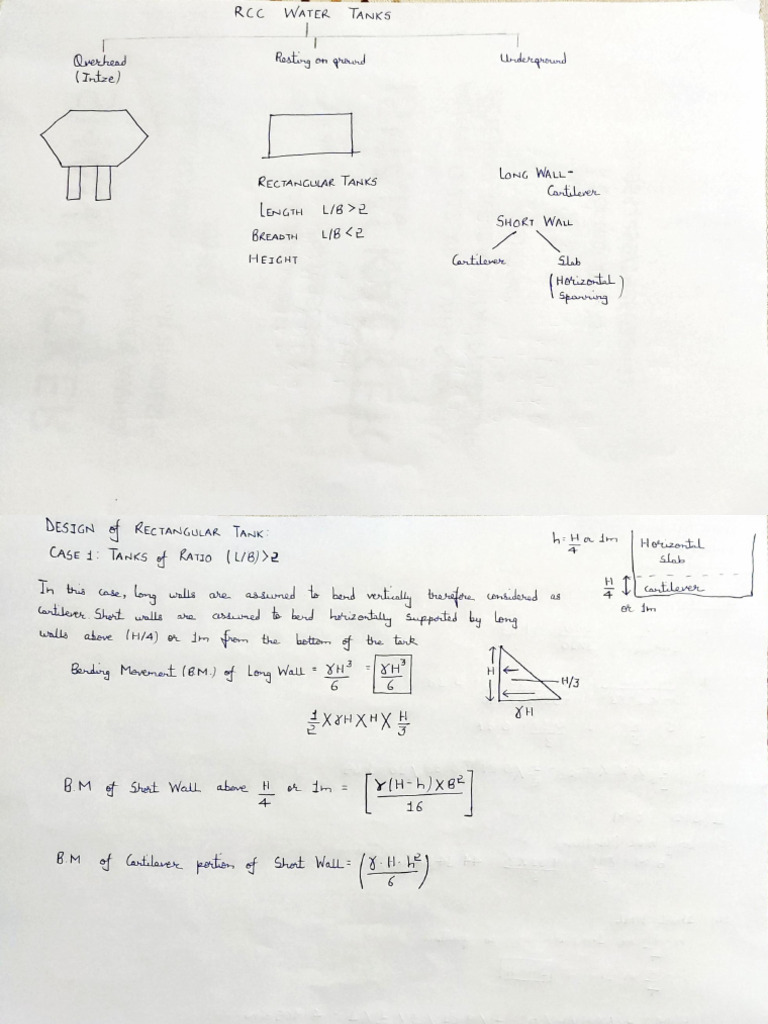 RCC WATER TANKS
Overhead
(Intze)
Resting on ground
Underground
RECTANGULAR TANKS
LENGTH L/B > 2
BREADTH L/B < 2
HEIGHT
LONG WALL -
Cantilever
SHORT WALL
Cantilever Slab
(Horizontal
Spanning)
DESIGN of RECTANGULAR TANK:
CASE 1: TANKS of RATIO (L/B)>2
h = H/4 or 1m
Horizontal
Slab
H/4 or 1m
Cantilever
In this case, Long walls are assumed to bend vertically therefore considered as
cantilever. Short walls are assumed to bend horizontally supported by long
walls above (H/4) or 1m from the bottom of the tank
Bending Movement (B.M.) of Long Wall = γH³/6 = γH³/6
H
H/3
γH
1/2 X γH X H X H/3
B.M of Short Wall above H/4 or 1m = [γ(H-h) X B²/16]
B.M of Cantilever portion of Short Wall = (γ·H·h²/6)